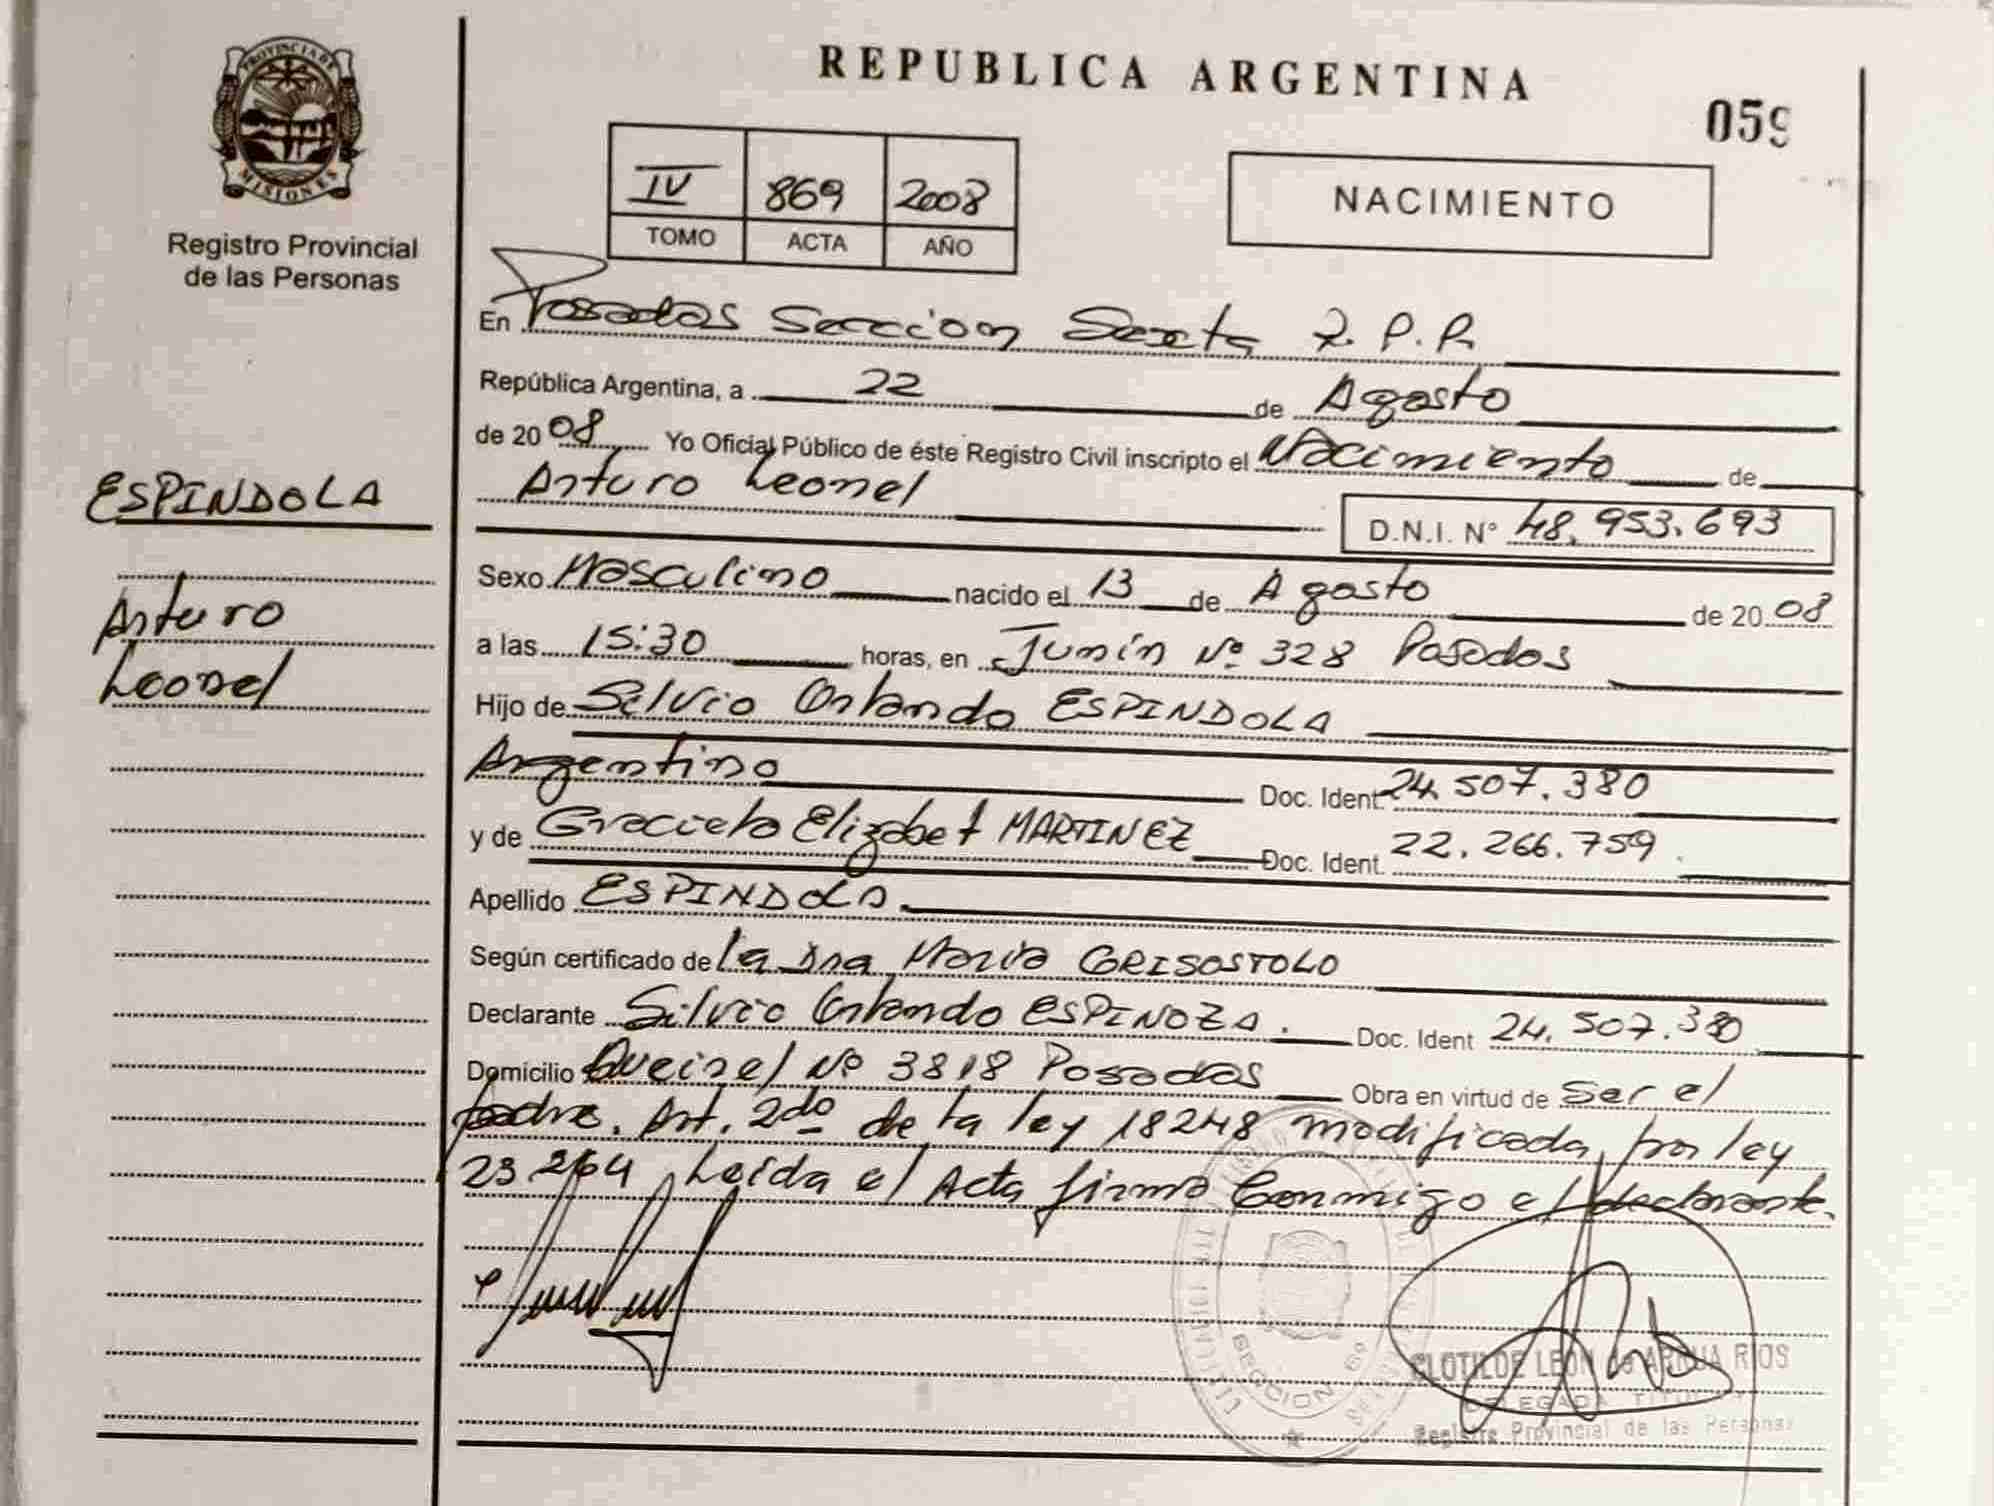 PROVINCIA DE
MISIONES
Registro Provincial
de las Personas
ESPINDOLA
Arturo
Leonel
REPUBLICA ARGENTINA
059
IV 869 2008
TOMO ACTA AÑO
NACIMIENTO
En Posadas Seccion Sexta R.P.P.
República Argentina, a 22 de Agosto
de 2008 Yo Oficial Público de éste Registro Civil inscripto el Nacimiento de
Arturo Leonel
D.N.I. N° 48.953.693
Sexo Masculino nacido el 13 de Agosto de 2008
a las 15:30 horas, en Junín Nº 328 Posadas
Hijo de Silvio Orlando ESPINDOLA
Argentino Doc. Ident. 24.507.380
y de Graciela Elizabet MARTINEZ Doc. Ident. 22.266.759
Apellido ESPINDOLA.
Según certificado de la Dra María GRISOSTOLO
Declarante Silvio Orlando ESPINOZA. Doc. Ident 24.507.380
Domicilio Nº 3818 Posadas Obra en virtud de Ser el
padre. Art. 2do de la ley 18248 modificada por ley
23264 Leída el Acta firma Conmigo el declarante.
SECCION 6º
CLOTILDE LEON de RIOS
DELEGADA TITULAR
Registro Provincial de las Personas